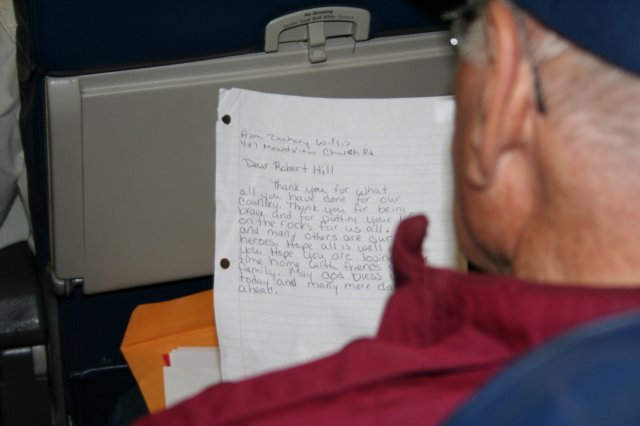 No Smoking
Fasten Seat Belt While Seated
From Zachary Willis
407 Mountview Church Rd
Dear Robert Hill
Thank you for what
all you have done for our
country. Thank you for being
brave and for putting your
on the rocks for us all.
and many others are our
heroes. Hope all is well
you. Hope you are loving
time home with friends
family. May God bless
today and many more da
ahead.